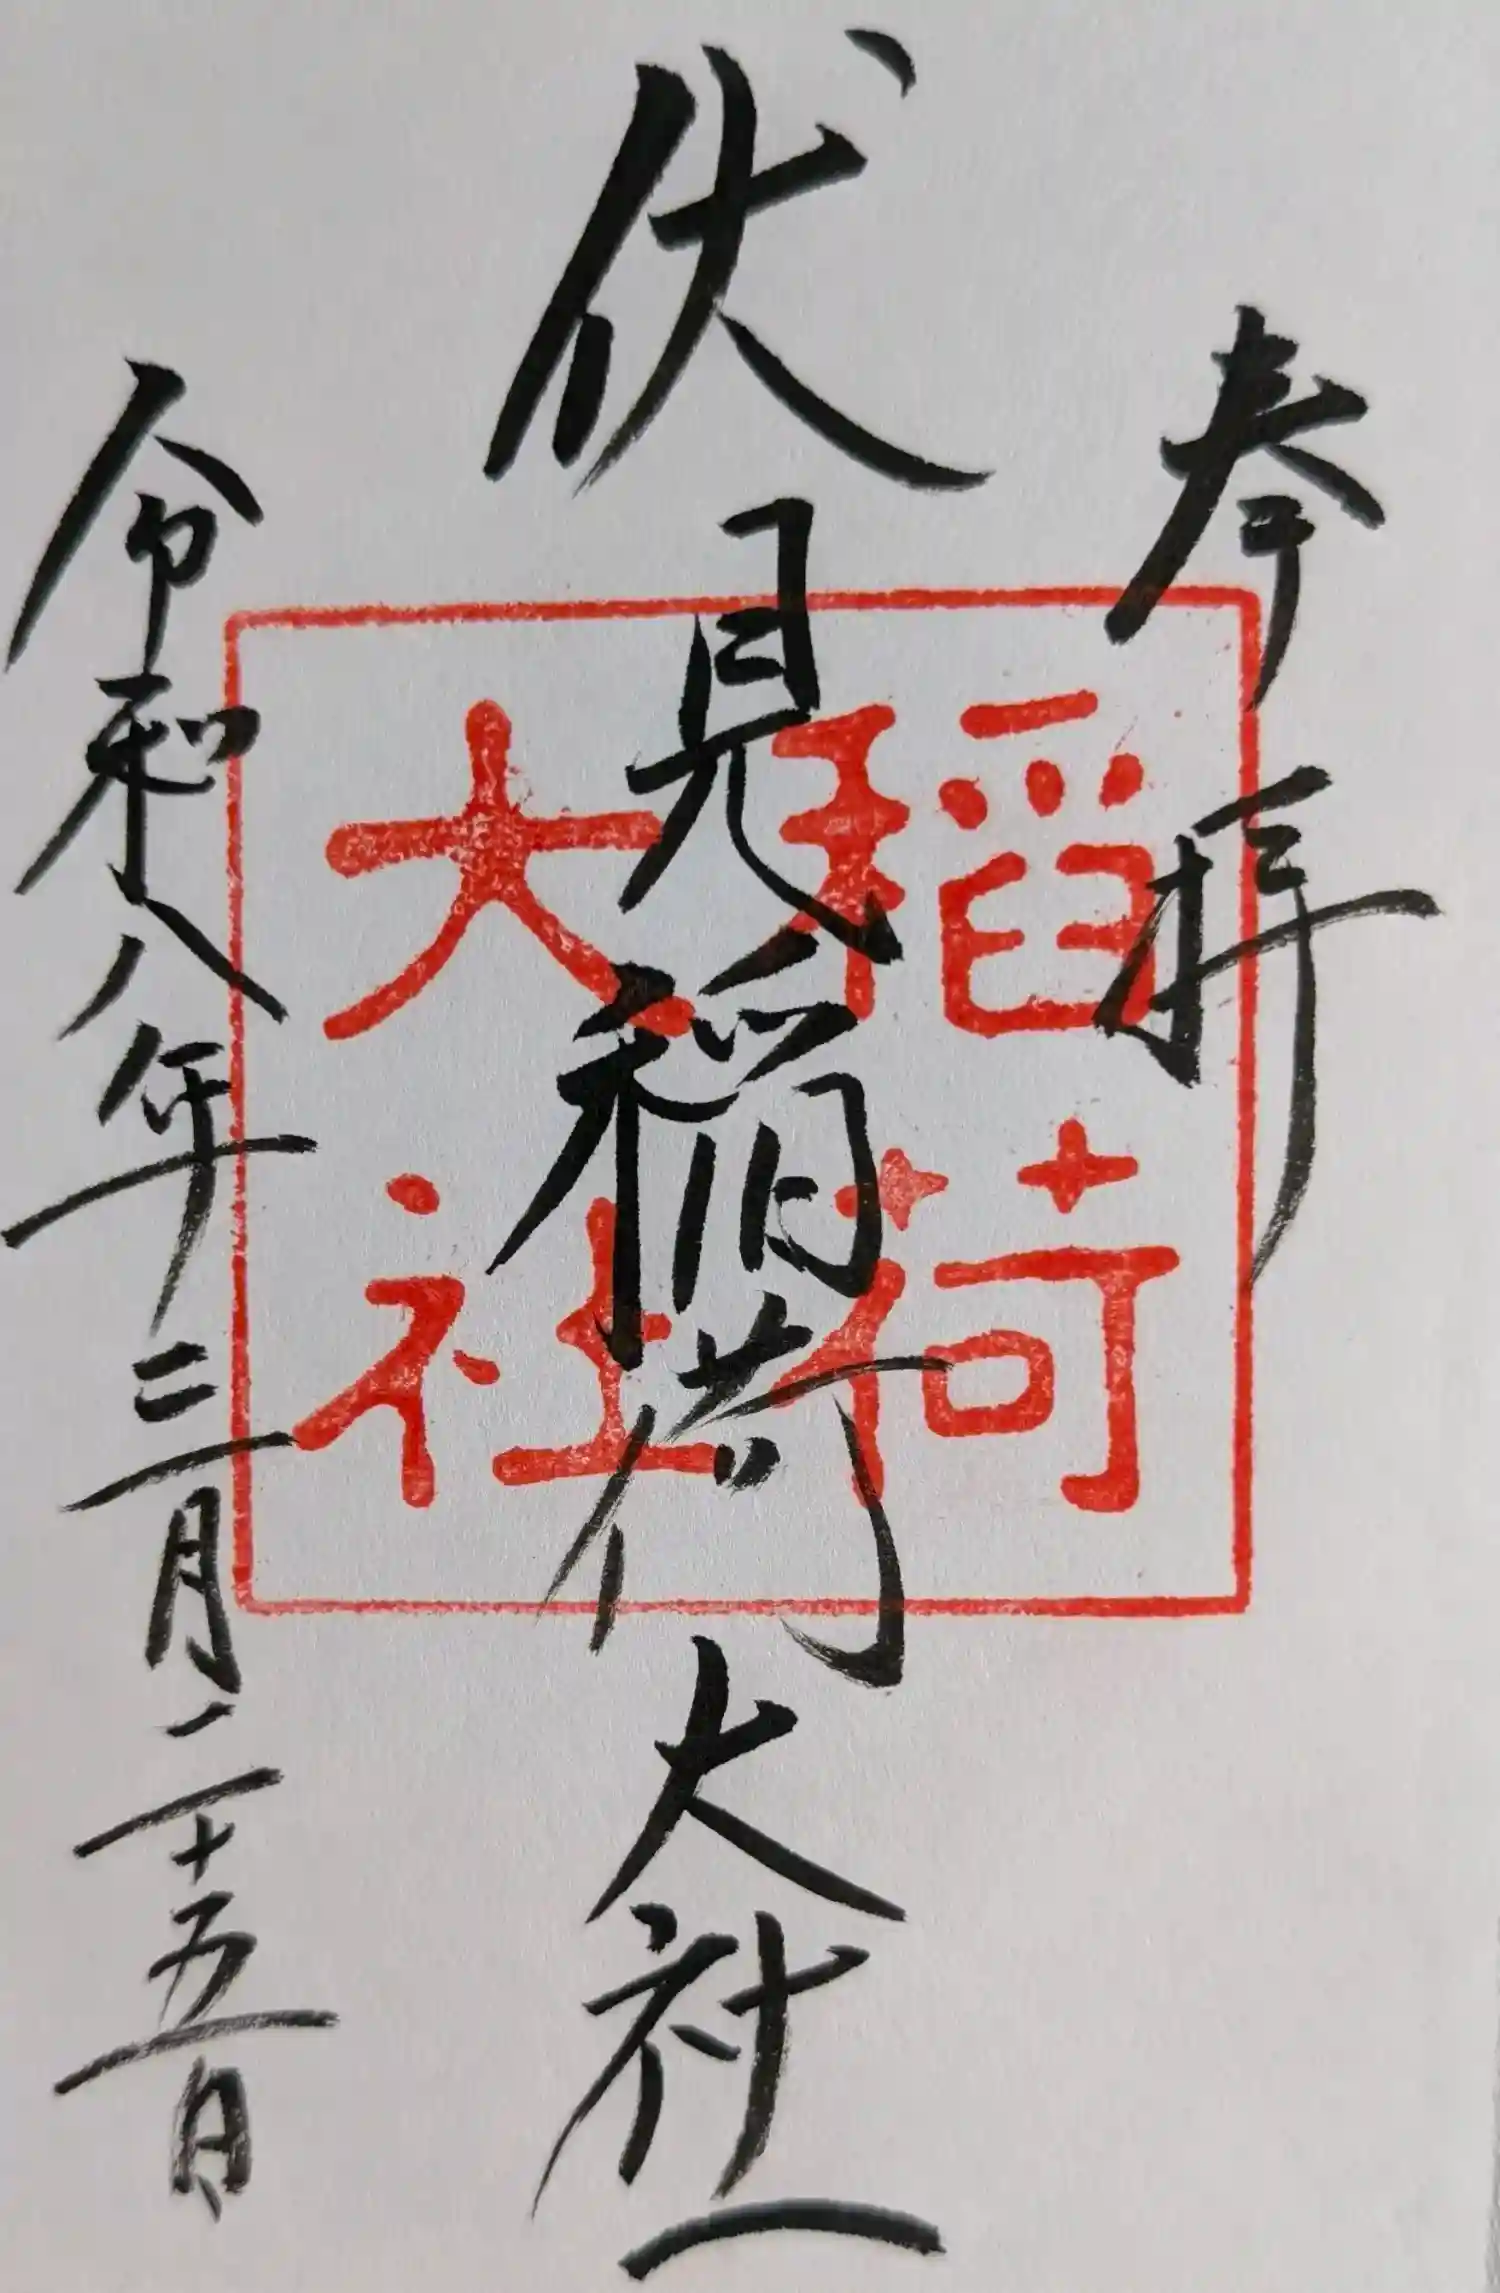 奉拝
伏見稲荷大社
稲荷
大社
令和八年三月二十五日